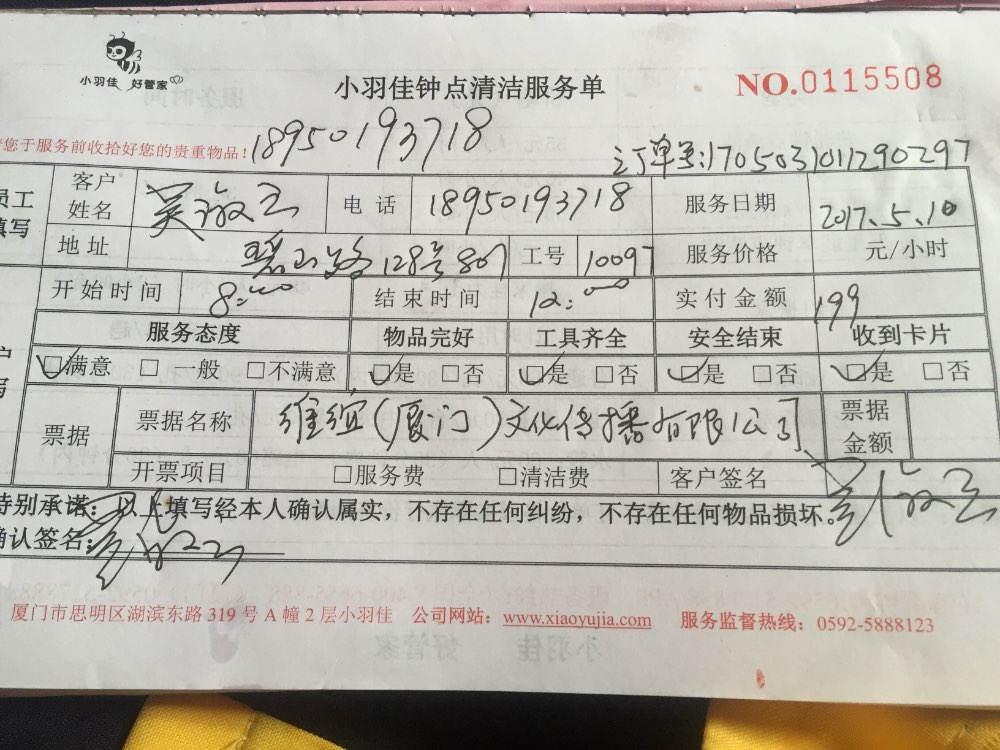 小羽佳 好管家
小羽佳钟点清洁服务单
NO.0115508
您于服务前收拾好您的贵重物品！
18950193718
订单号:1705031011290297
员工填写 客户姓名 吴 云 电话 18950193718 服务日期 2017.5.10
地址 路128号807 工号 10097 服务价格 元/小时
开始时间 8:00 结束时间 12:00 实付金额 199
服务态度 物品完好 工具齐全 安全结束 收到卡片
☑满意 □一般 □不满意 ☑是 □否 ☑是 □否 ☑是 □否 ☑是 □否
票据 票据名称 维谊(厦门)文化传播有限公司 票据金额
开票项目 □服务费 □清洁费 客户签名
特别承诺：以上填写经本人确认属实，不存在任何纠纷，不存在任何物品损坏。
确认签名：
厦门市思明区湖滨东路 319 号 A 幢 2 层小羽佳 公司网站：www.xiaoyujia.com 服务监督热线：0592-5888123